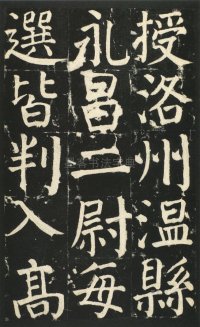 授洛州溫縣
永昌二尉每
選皆判入高